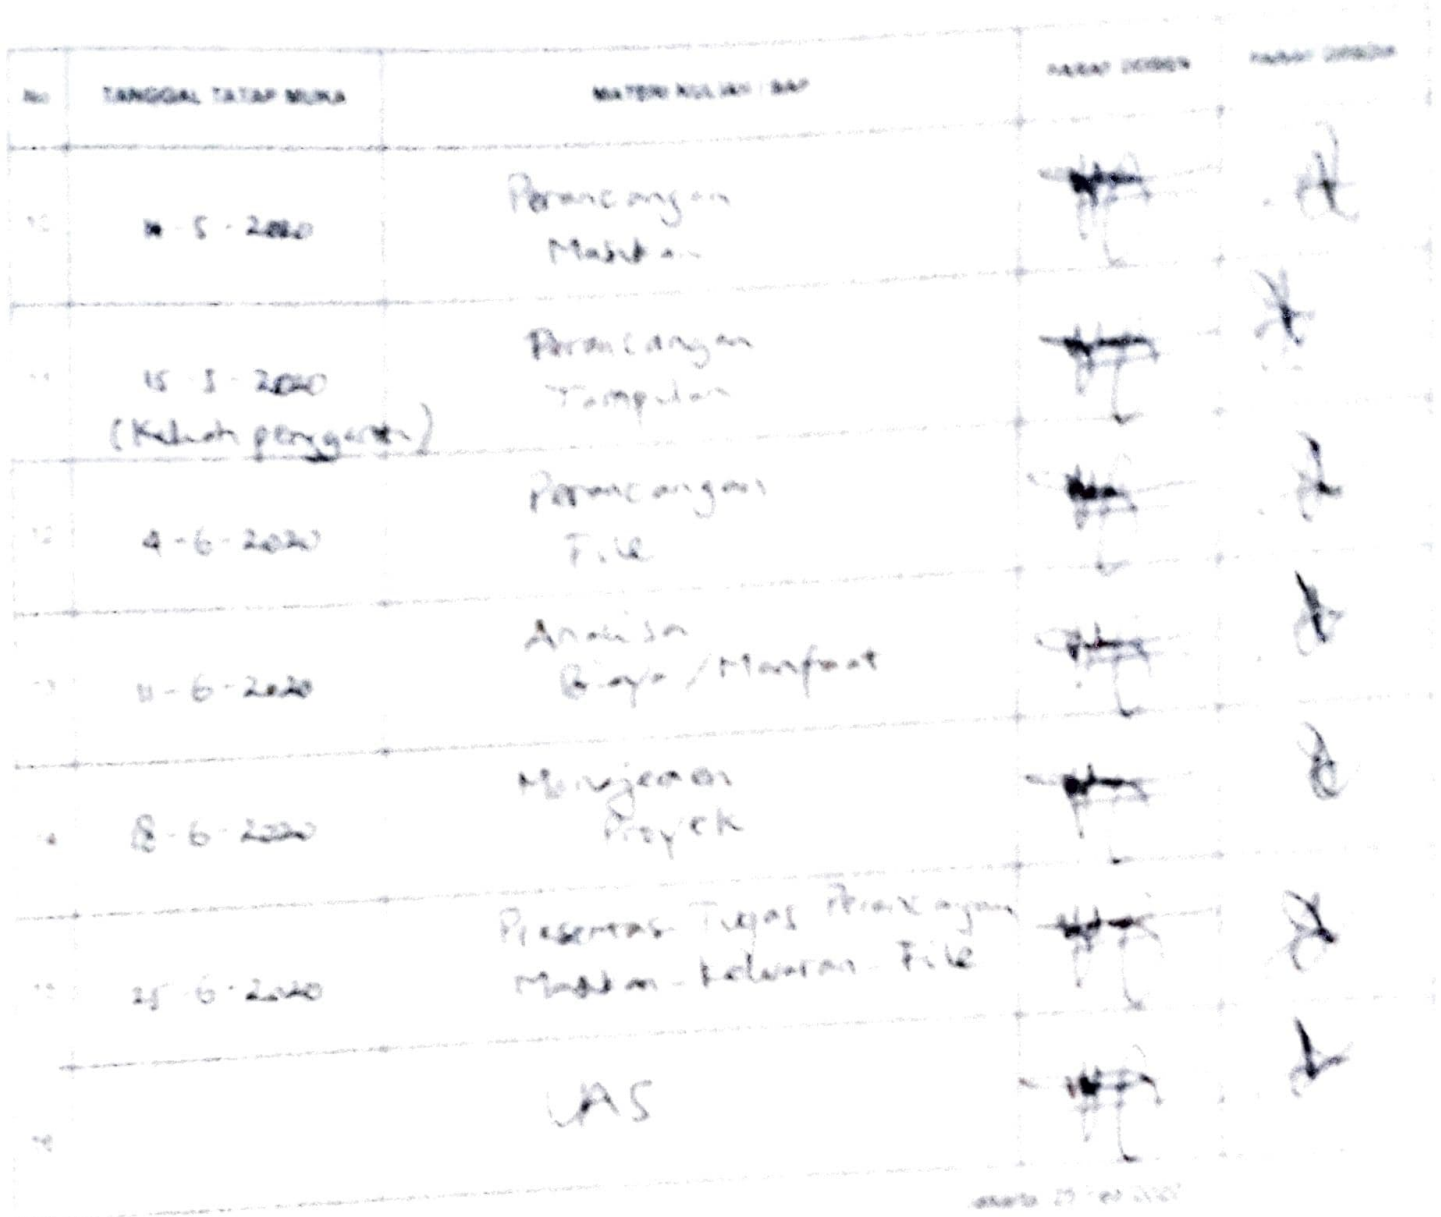 No TANGGAL TATAP MUKA MATERI KULIAH / SAP PARAF DOSEN
10 5 - 2020 Perancangan
Masukan
11 15 - 5 - 2020 Perancangan
(Kuliah pengganti) Tampilan
12 4 - 6 - 2020 Perancangan
File
13 11 - 6 - 2020 Analisa
Biaya / Manfaat
14 18 - 6 - 2020 Manajemen
Proyek
15 25 - 6 - 2020 Presentasi Tugas Perancangan
Masukan - Keluaran - File
16 UAS
Jakarta